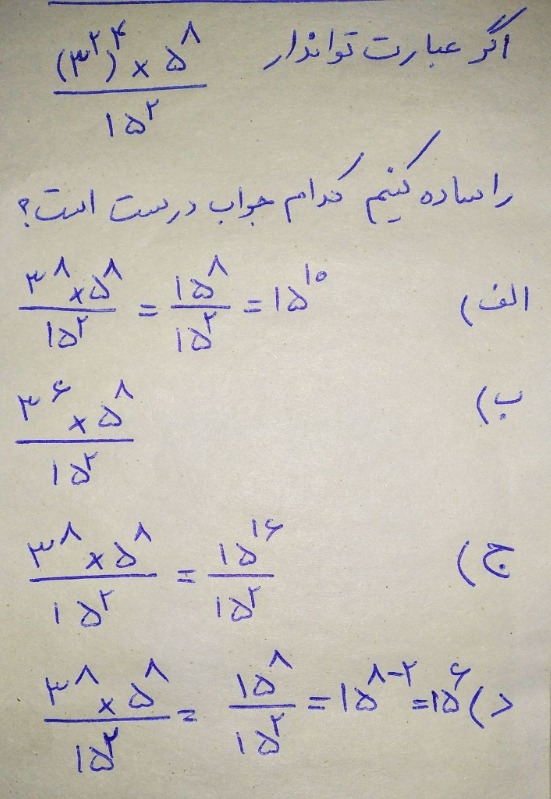 اگر عبارت توانْدار (۳^۲)^۴ × ۵^۸ / ۱۵^۲
را ساده کنیم کدام جواب درست است؟
الف) ۳^۸ × ۵^۸ / ۱۵^۲ = ۱۵^۸ / ۱۵^۲ = ۱۵^۱۰
ب) ۳^۶ × ۵^۸ / ۱۵^۲
ج) ۳^۸ × ۵^۸ / ۱۵^۲ = ۱۵^۱۶ / ۱۵^۲
د) ۳^۸ × ۵^۸ / ۱۵^۲ = ۱۵^۸ / ۱۵^۲ = ۱۵^۸-۲ = ۱۵^۶